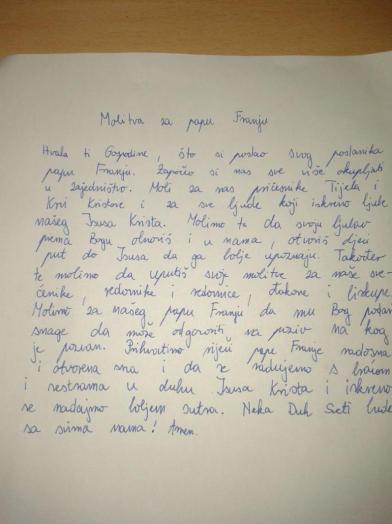 Molitva za papu Franju
Hvala ti Gospodine, što si poslao svog poslanika
papu Franju. Započeo si nas sve više okupljati
u zajedništvo. Moli za nas pričesnike Tijela i
Krvi Kristove i za sve ljude koji iskreno ljube
našeg Isusa Krista. Molimo te da svoju ljubav
prema Bogu otvoriš i u nama, otvoriš djeci
put do Isusa da ga bolje upoznaju. Također
te molimo da uputiš svoje molitve za naše sve-
ćenike, redovnike i redovnice, đakone i biskupe.
Molimo za našeg papu Franju da mu Bog podari
snage da može odgovoriti na poziv na kog
je pozvan. Prihvatimo riječi pape Franje radosna
i otvorena srca i da se radujemo s braćom
i sestrama u duhu Isusa Krista i iskreno
se nadajmo boljem sutra. Neka Duh Sveti bude
sa svima nama! Amen.